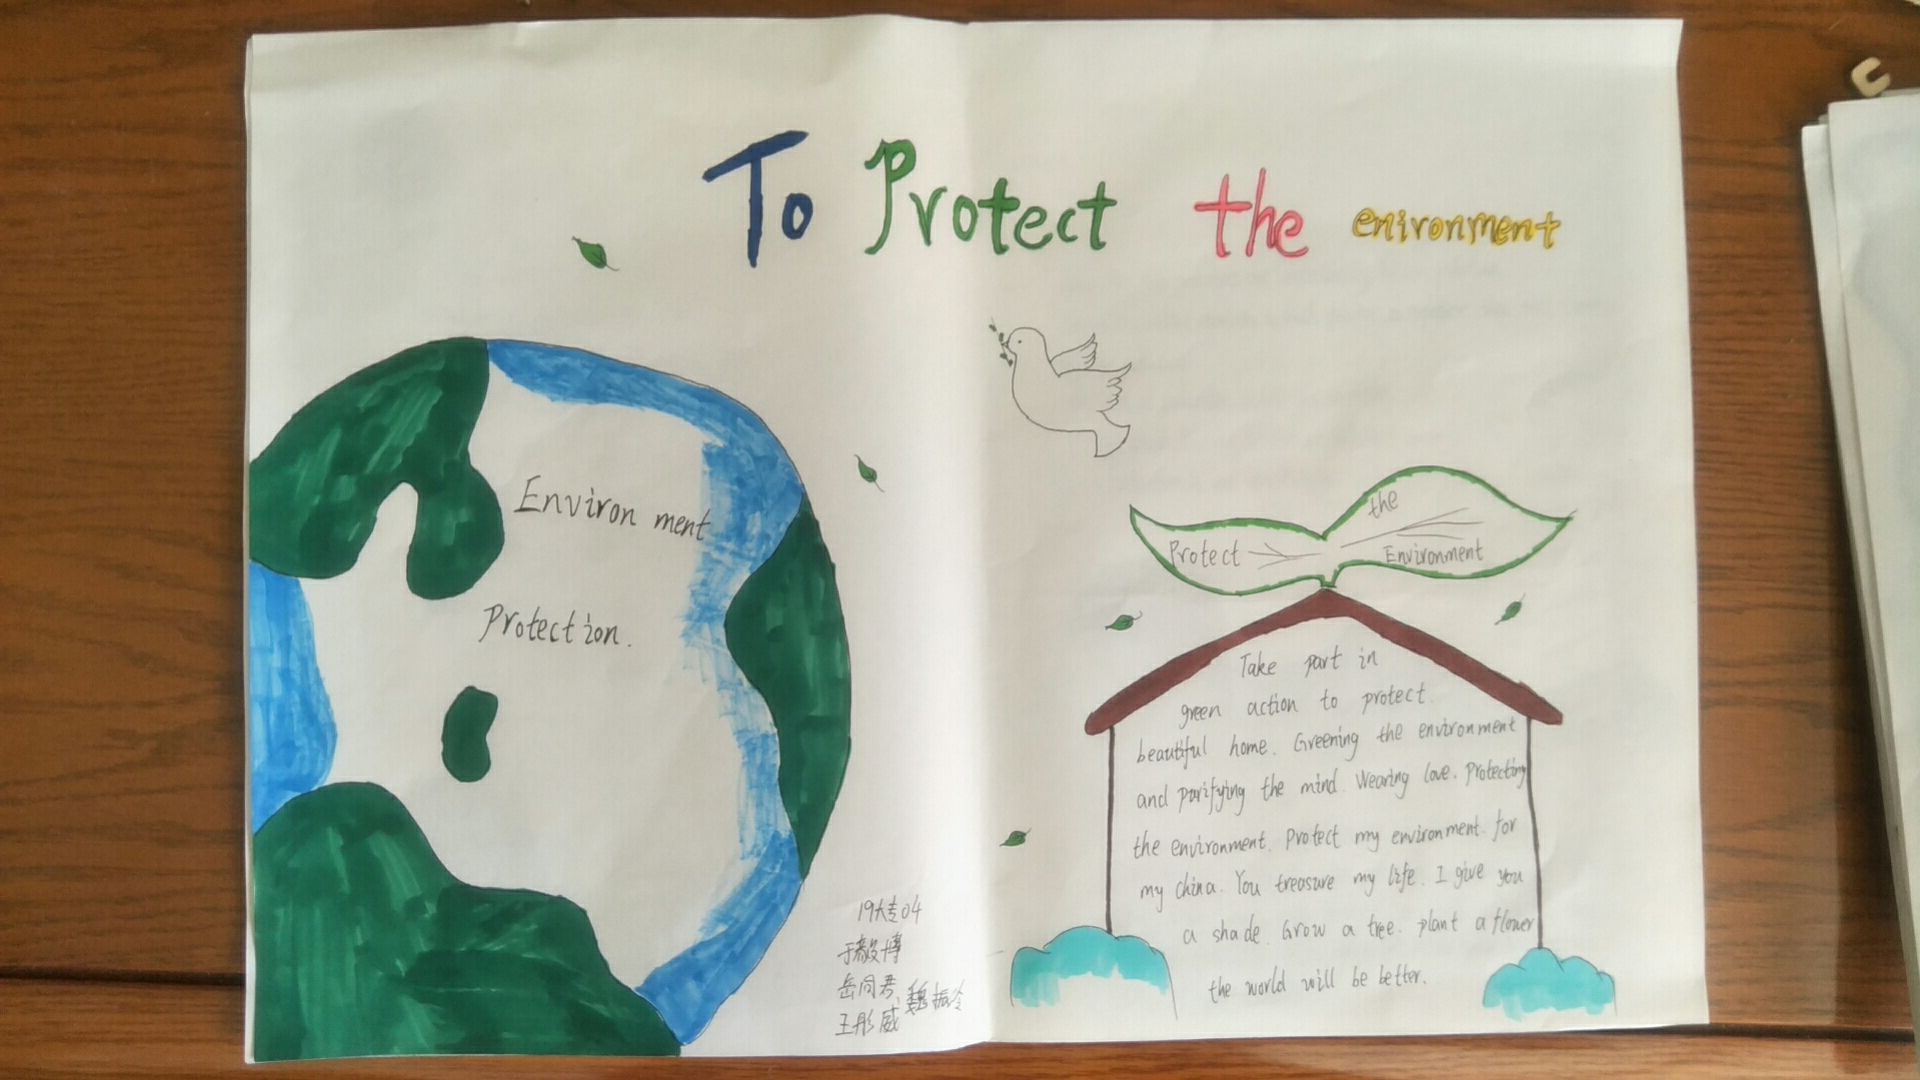 To Protect the enironment
Environ ment
Protection.
the
Protect
Environment
Take part in
green action to protect.
beautiful home. Greening the environment
and purifying the mind. Wearing love. Protecting
the environment. Protect my environment. for
my china. You treasure my life. I give you
a shade. Grow a tree. plant a flower
the world will be better.
19大专04
于毅博
岳同君 魏振
王彤威